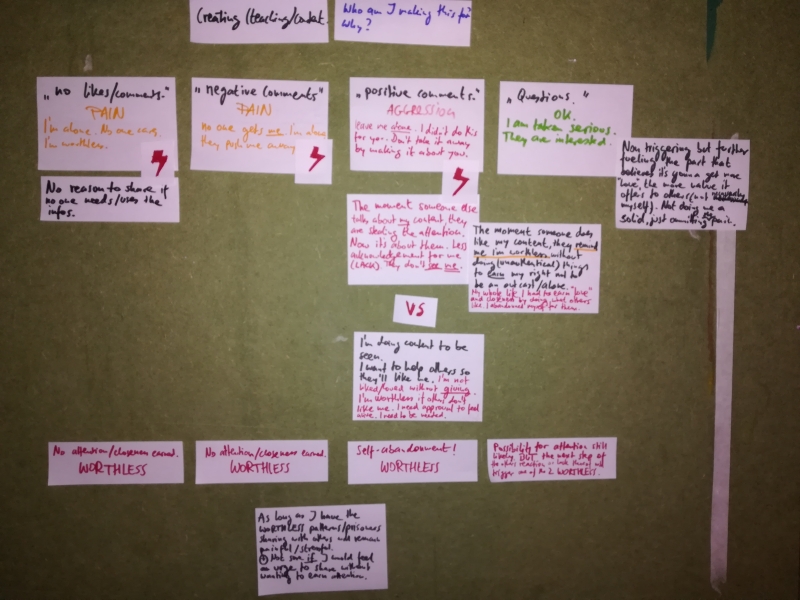 Creating (teaching/content.
Who am I making this for?
Why?
"no likes/comments."
PAIN
I'm alone. No one cares.
I'm worthless.
"negative comments"
PAIN
no one gets me I'm alone
they push me away
"positive comments."
AGGRESSION
leave me alone. I didn't do this
for you. Don't take it away
by making it about you.
"Questions."
OK.
I am taken serious.
They are interested.
Non triggering but further
fueling the part that
believes it's gonna get more
love, the more value it
offers to others (not
myself). Not doing me a
solid, just
No reason to share if
no one needs/uses the
infos.
The moment someone else
talks about my content they
are stealing the attention.
Now it's about them. Less
acknowledgement for me
(LACK) They don't see me.
The moment someone does
like my content, they remind
me I'm worthless without
doing (unauthentical) things
to earn my right not to
be an outcast/alone.
My whole life I had to earn "love"
and closeness by doing what others
like. I abandoned myself for them.
VS
I'm doing content to be
seen.
I want to help others so
they'll like me. I'm not
liked/loved without giving.
I'm worthless if others don't
like me. I need approval to feel
I need to be needed.
No attention/closeness earned.
WORTHLESS
No attention/closeness earned.
WORTHLESS
Self-abandonment!
WORTHLESS
Possibility for attention still
likely BUT the next step of
the others reaction or lack thereof will
trigger one of the 2 WORTHLESS.
As long as I have the
WORTHLESS patterns/prisoners
sharing with others will remain
painful/stressful.
Not sure if I would feel
an urge to share without
wanting to earn attention.